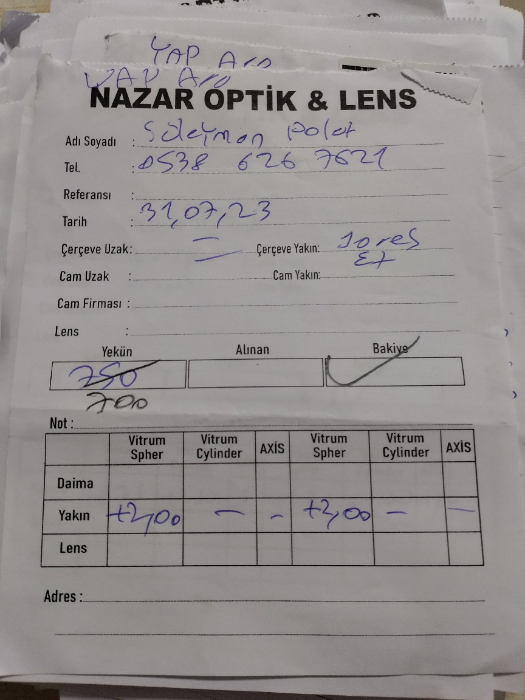 YAP Ara
WAP Ara
NAZAR OPTİK & LENS
Adı Soyadı : Süleyman Polat
Tel. : 0538 626 7621
Referansı :
Tarih : 31,07,23
Çerçeve Uzak: — Çerçeve Yakın:
Cam Uzak : Cam Yakın:
Cam Firması :
Lens :
Yekün Alınan Bakiye
750
700
Not :
Vitrum Spher Vitrum Cylinder AXİS Vitrum Spher Vitrum Cylinder AXİS
Daima
Yakın +2,00 — - +2,00 — —
Lens
Adres :